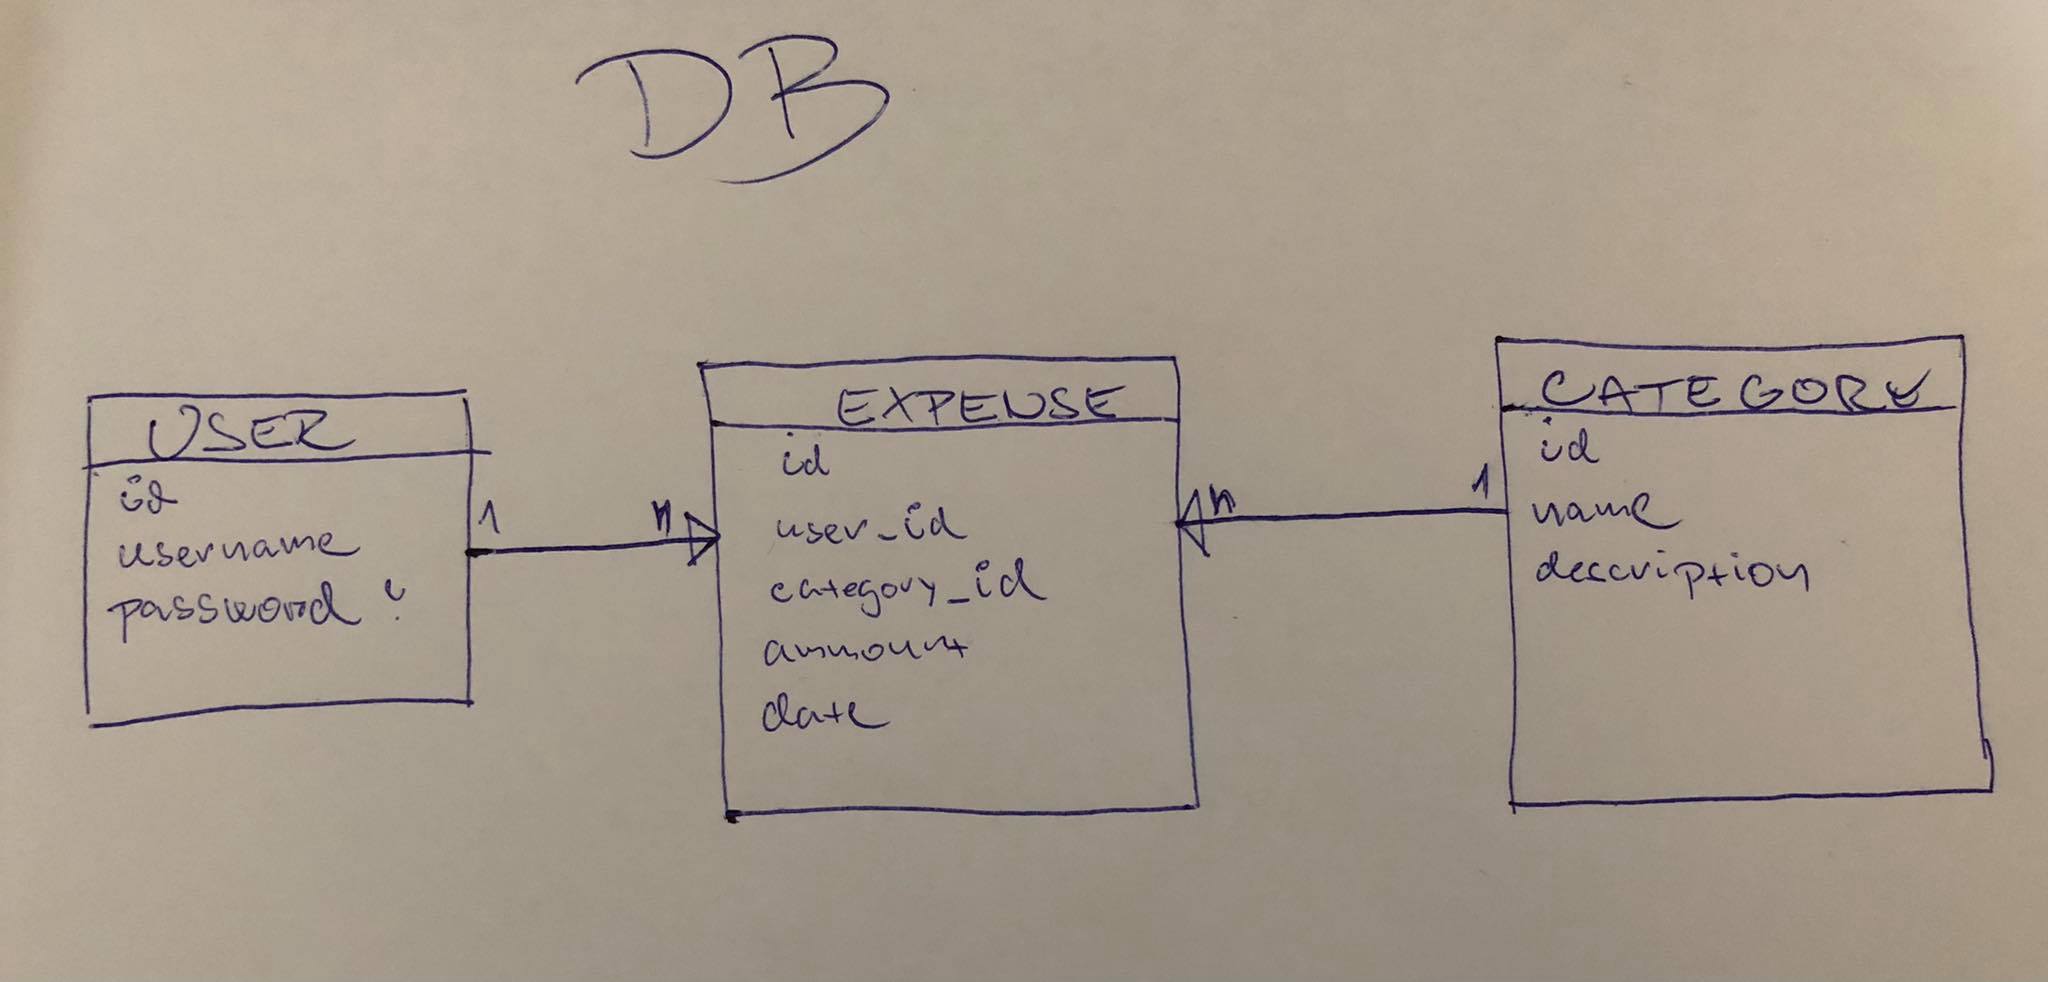 DB
USER
id
username
password
1
n
EXPENSE
id
user_id
category_id
ammount
date
n
1
CATEGORY
id
name
description